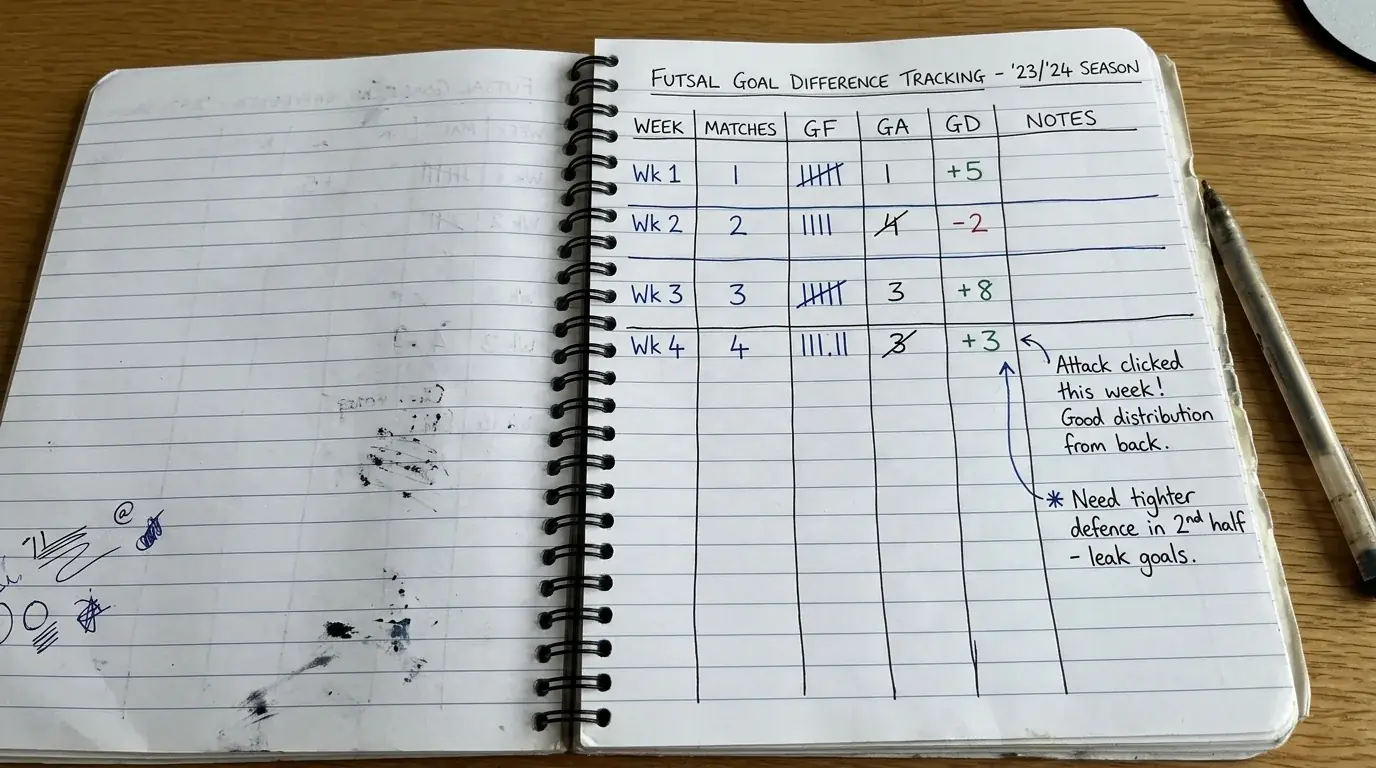 FUTSAL GOAL DIFFERENCE TRACKING - '23/'24 SEASON
WEEK MATCHES GF GA GD NOTES
Wk 1 1 1 +5
Wk 2 2 |||| 4 -2
Wk 3 3 3 +8
Wk 4 4 |||.|| 3 +3
Attack clicked
this week!
Good distribution
from back.
* Need tighter
defence in 2nd half
- leak goals.
@